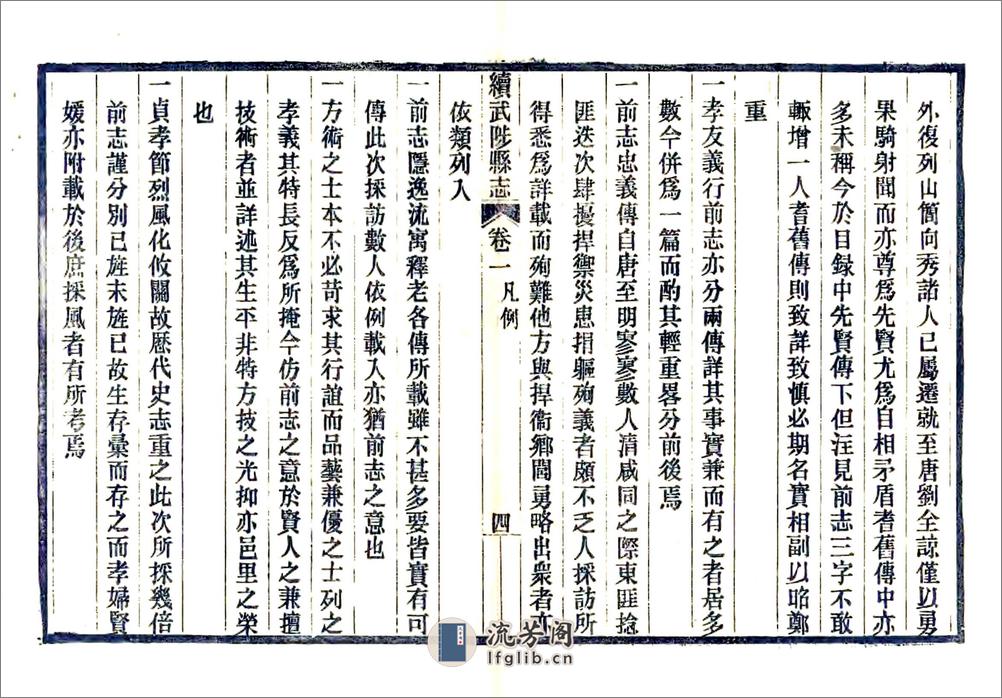 外復列山簡向秀諸人已屬遷就至唐劉全諒僅以勇
果騎射聞而亦尊爲先賢尤爲自相矛盾耆舊傳中亦
多未稱今於目録中先賢傳下但注見前志三字不敢
輒增一人耆舊傳則致詳致慎必期名實相副以昭鄭
重
一孝友義行前志亦分兩傳詳其事實兼而有之者居多
數今併爲一篇而酌其輕重畧分前後焉
一前志忠義傳自唐至明寥寥數人清咸同之際東匪捻
匪迭次肆擾捍禦災患捐軀殉義者頗不乏人採訪所
得悉爲詳載而殉難他方與捍衞鄉閭勇略出衆者亦
續武陟縣志 卷一 凡例 四
依類列入
一前志隱逸流寓釋老各傳所載雖不甚多要皆實有可
傳此次採訪數人依例載入亦猶前志之意也
一方術之士本不必苛求其行誼而品藝兼優之士列之
孝義其特長反爲所掩今仿前志之意於賢人之兼擅
技術者並詳述其生平非特方技之光抑亦邑里之榮
也
一貞孝節烈風化攸關故歷代史志重之此次所採幾倍
前志謹分別已旌未旌已故生存彙而存之而孝婦賢
媛亦附載於後庶採風者有所考焉
流芳阁
lfglib.cn